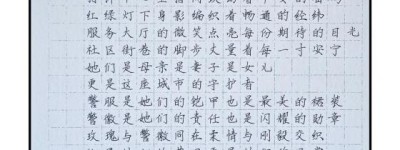 红绿灯下身影编织着畅通的经纬
服务大厅的微笑点亮每份期待的目光
社区街巷的脚步丈量着每一寸安宁
她们是母亲是妻子是女儿
更是这座城市的守护者
警服是她们的铠甲也是最美的裙装
警徽是她们的责任也是闪耀的勋章
玫瑰与警徽同在柔情与刚毅交织